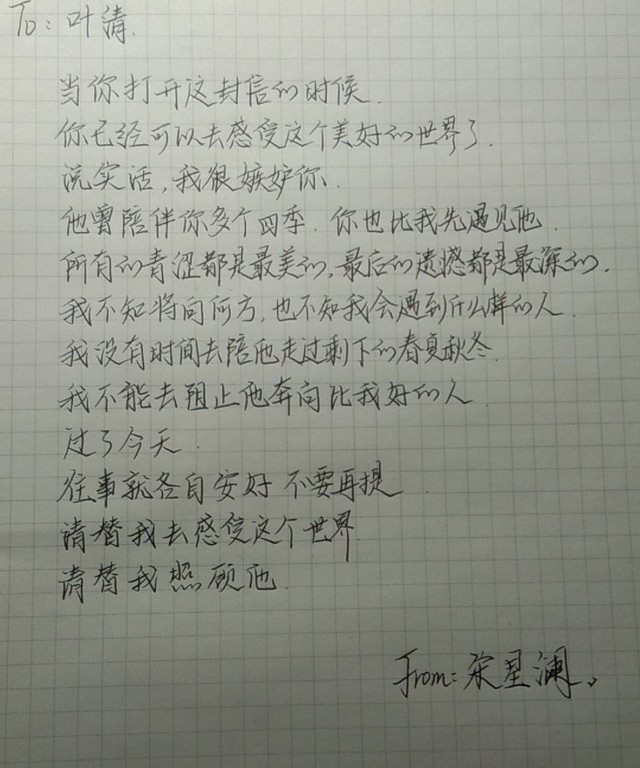 To: 叶清.
当你打开这封信的时候.
你已经可以去感受这个美好的世界了.
说实话,我很嫉妒你.
他曾陪伴你多个四季.你也比我先遇见他.
所有的青涩都是最美的,最后的遗憾都是最深的.
我不知将向何方,也不知我会遇到什么样的人.
我没有时间去陪他走过剩下的春夏秋冬.
我不能去阻止他奔向比我好的人.
过了今天.
往事就各自安好 不要再提.
请替我去感受这个世界
请替我照顾他.
From: 宋星澜。